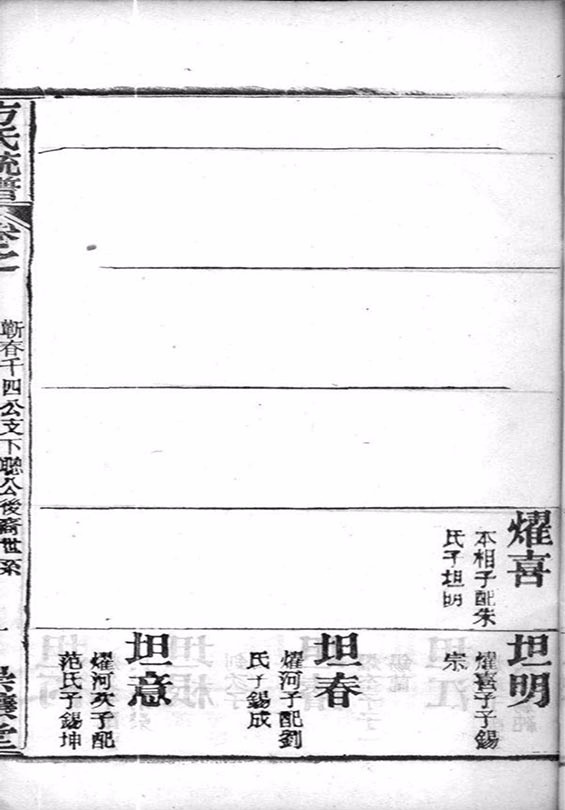 燿喜
本相子配朱
氏子坦明
坦明
燿喜子子錫
宗
坦春
燿河子配劉
氏子錫成
坦意
燿河次子配
范氏子錫坤
方氏統譜
卷之
蘄春千四公支下聰公後裔世系